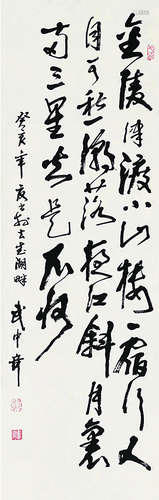 金陵津渡小山樓一宿行人
自可愁潮落夜江斜月裏
兩三星火是瓜洲
癸亥年夏 湖畔
武中奇